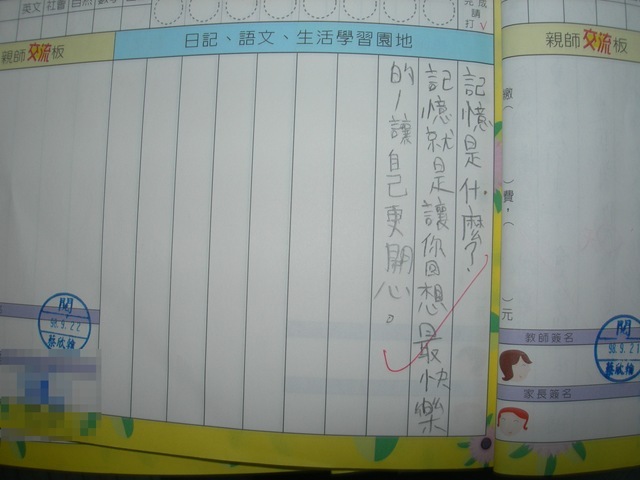 英文 社會 自然
完成請打√
日記、語文、生活學習園地
親師交流板
記憶是什麼?
記憶就是讓你回想最快樂
的,讓自己更開心。
閱
98.9.22
蔡欣倫
親師交流板
繳( )費,( )元
教師簽名
閱
98.9.21
家長簽名